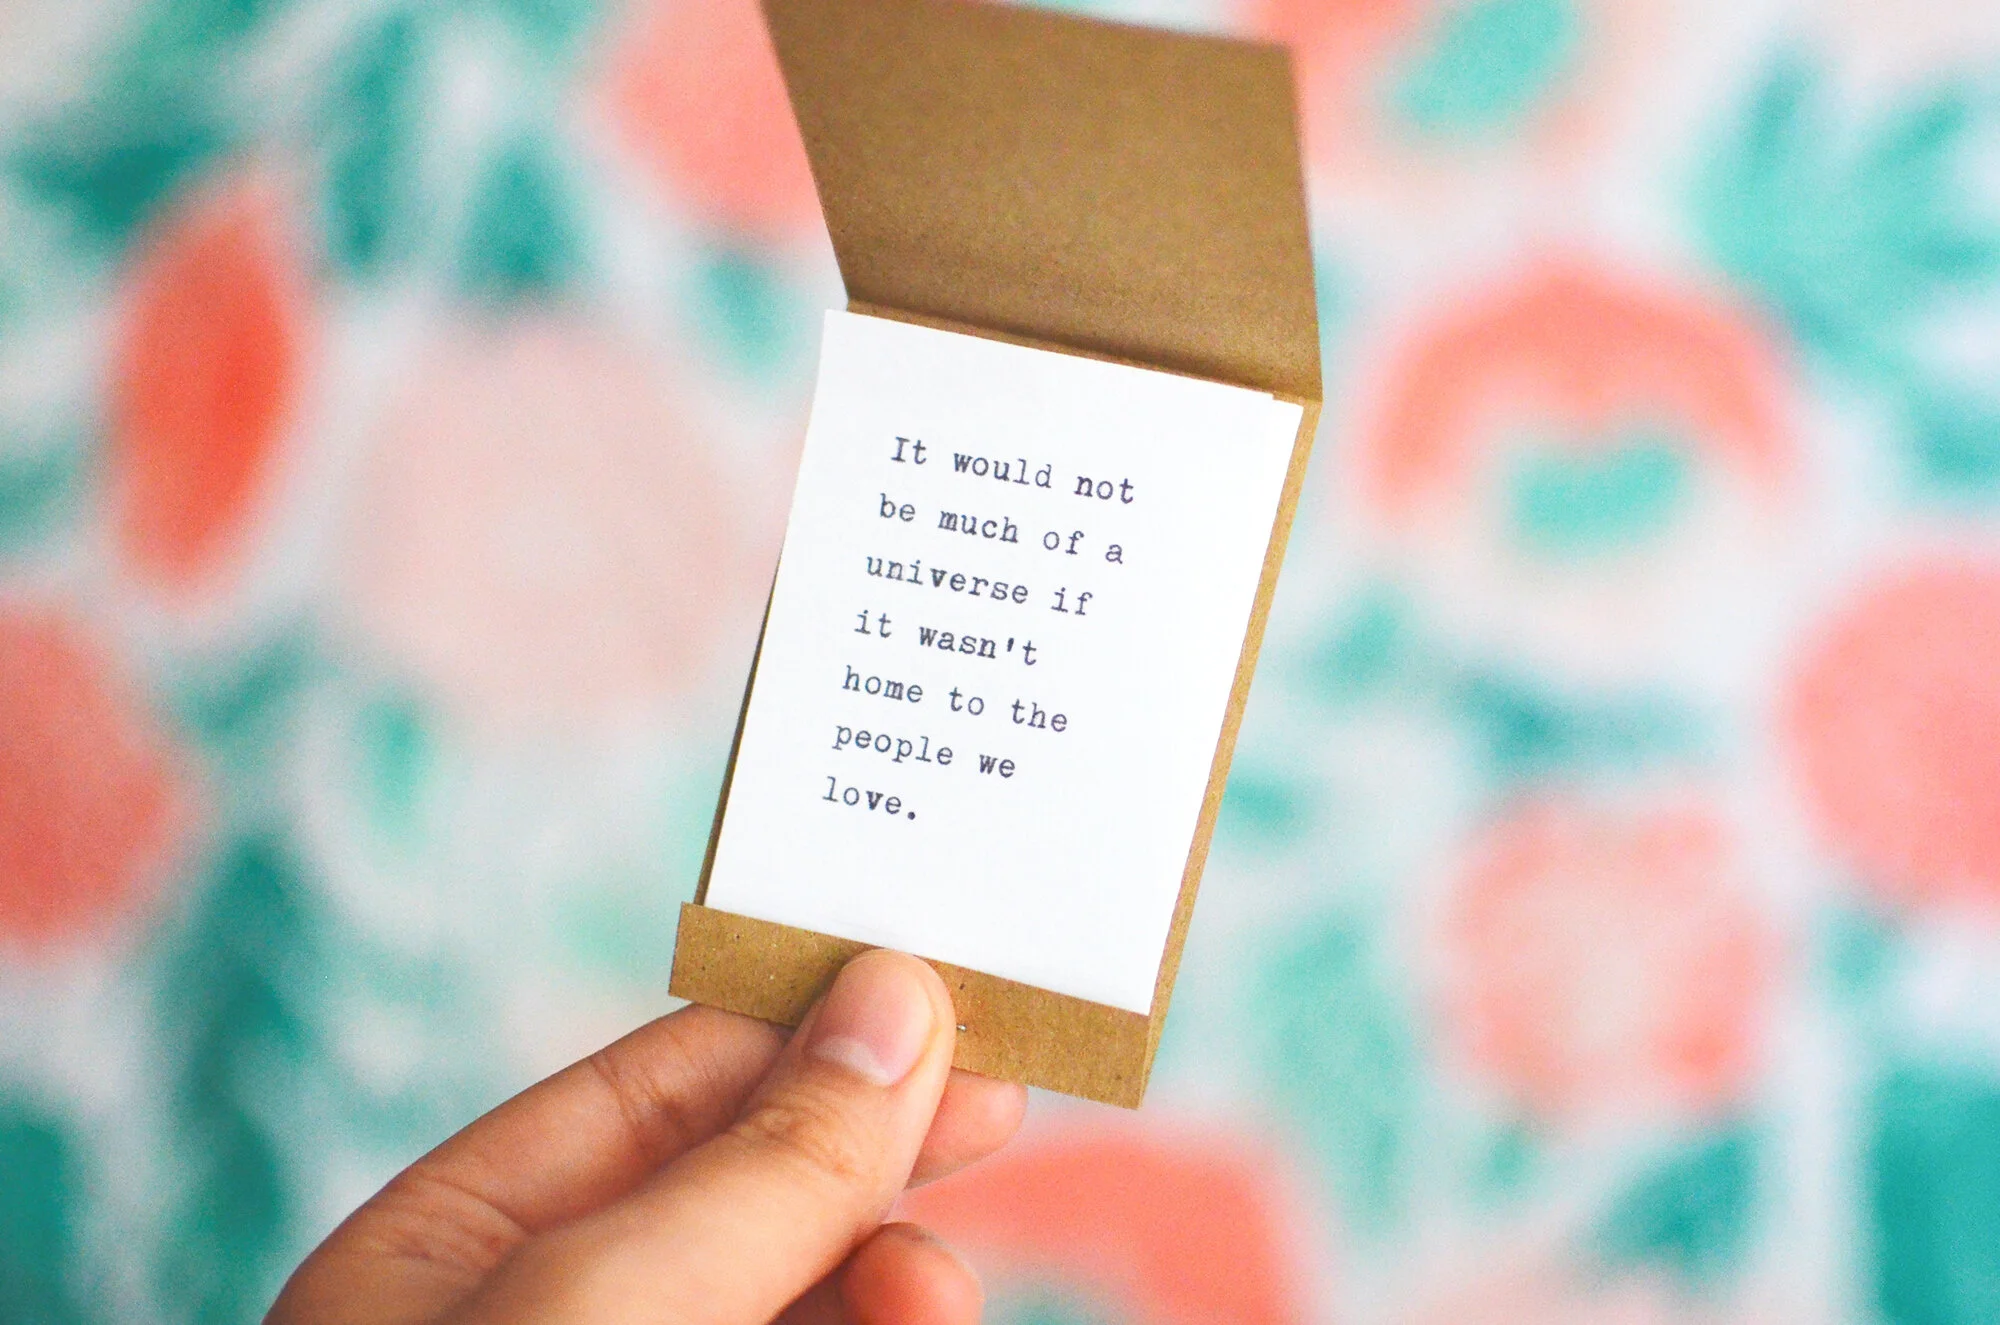 It would not
be much of a
universe if
it wasn't
home to the
people we
love.